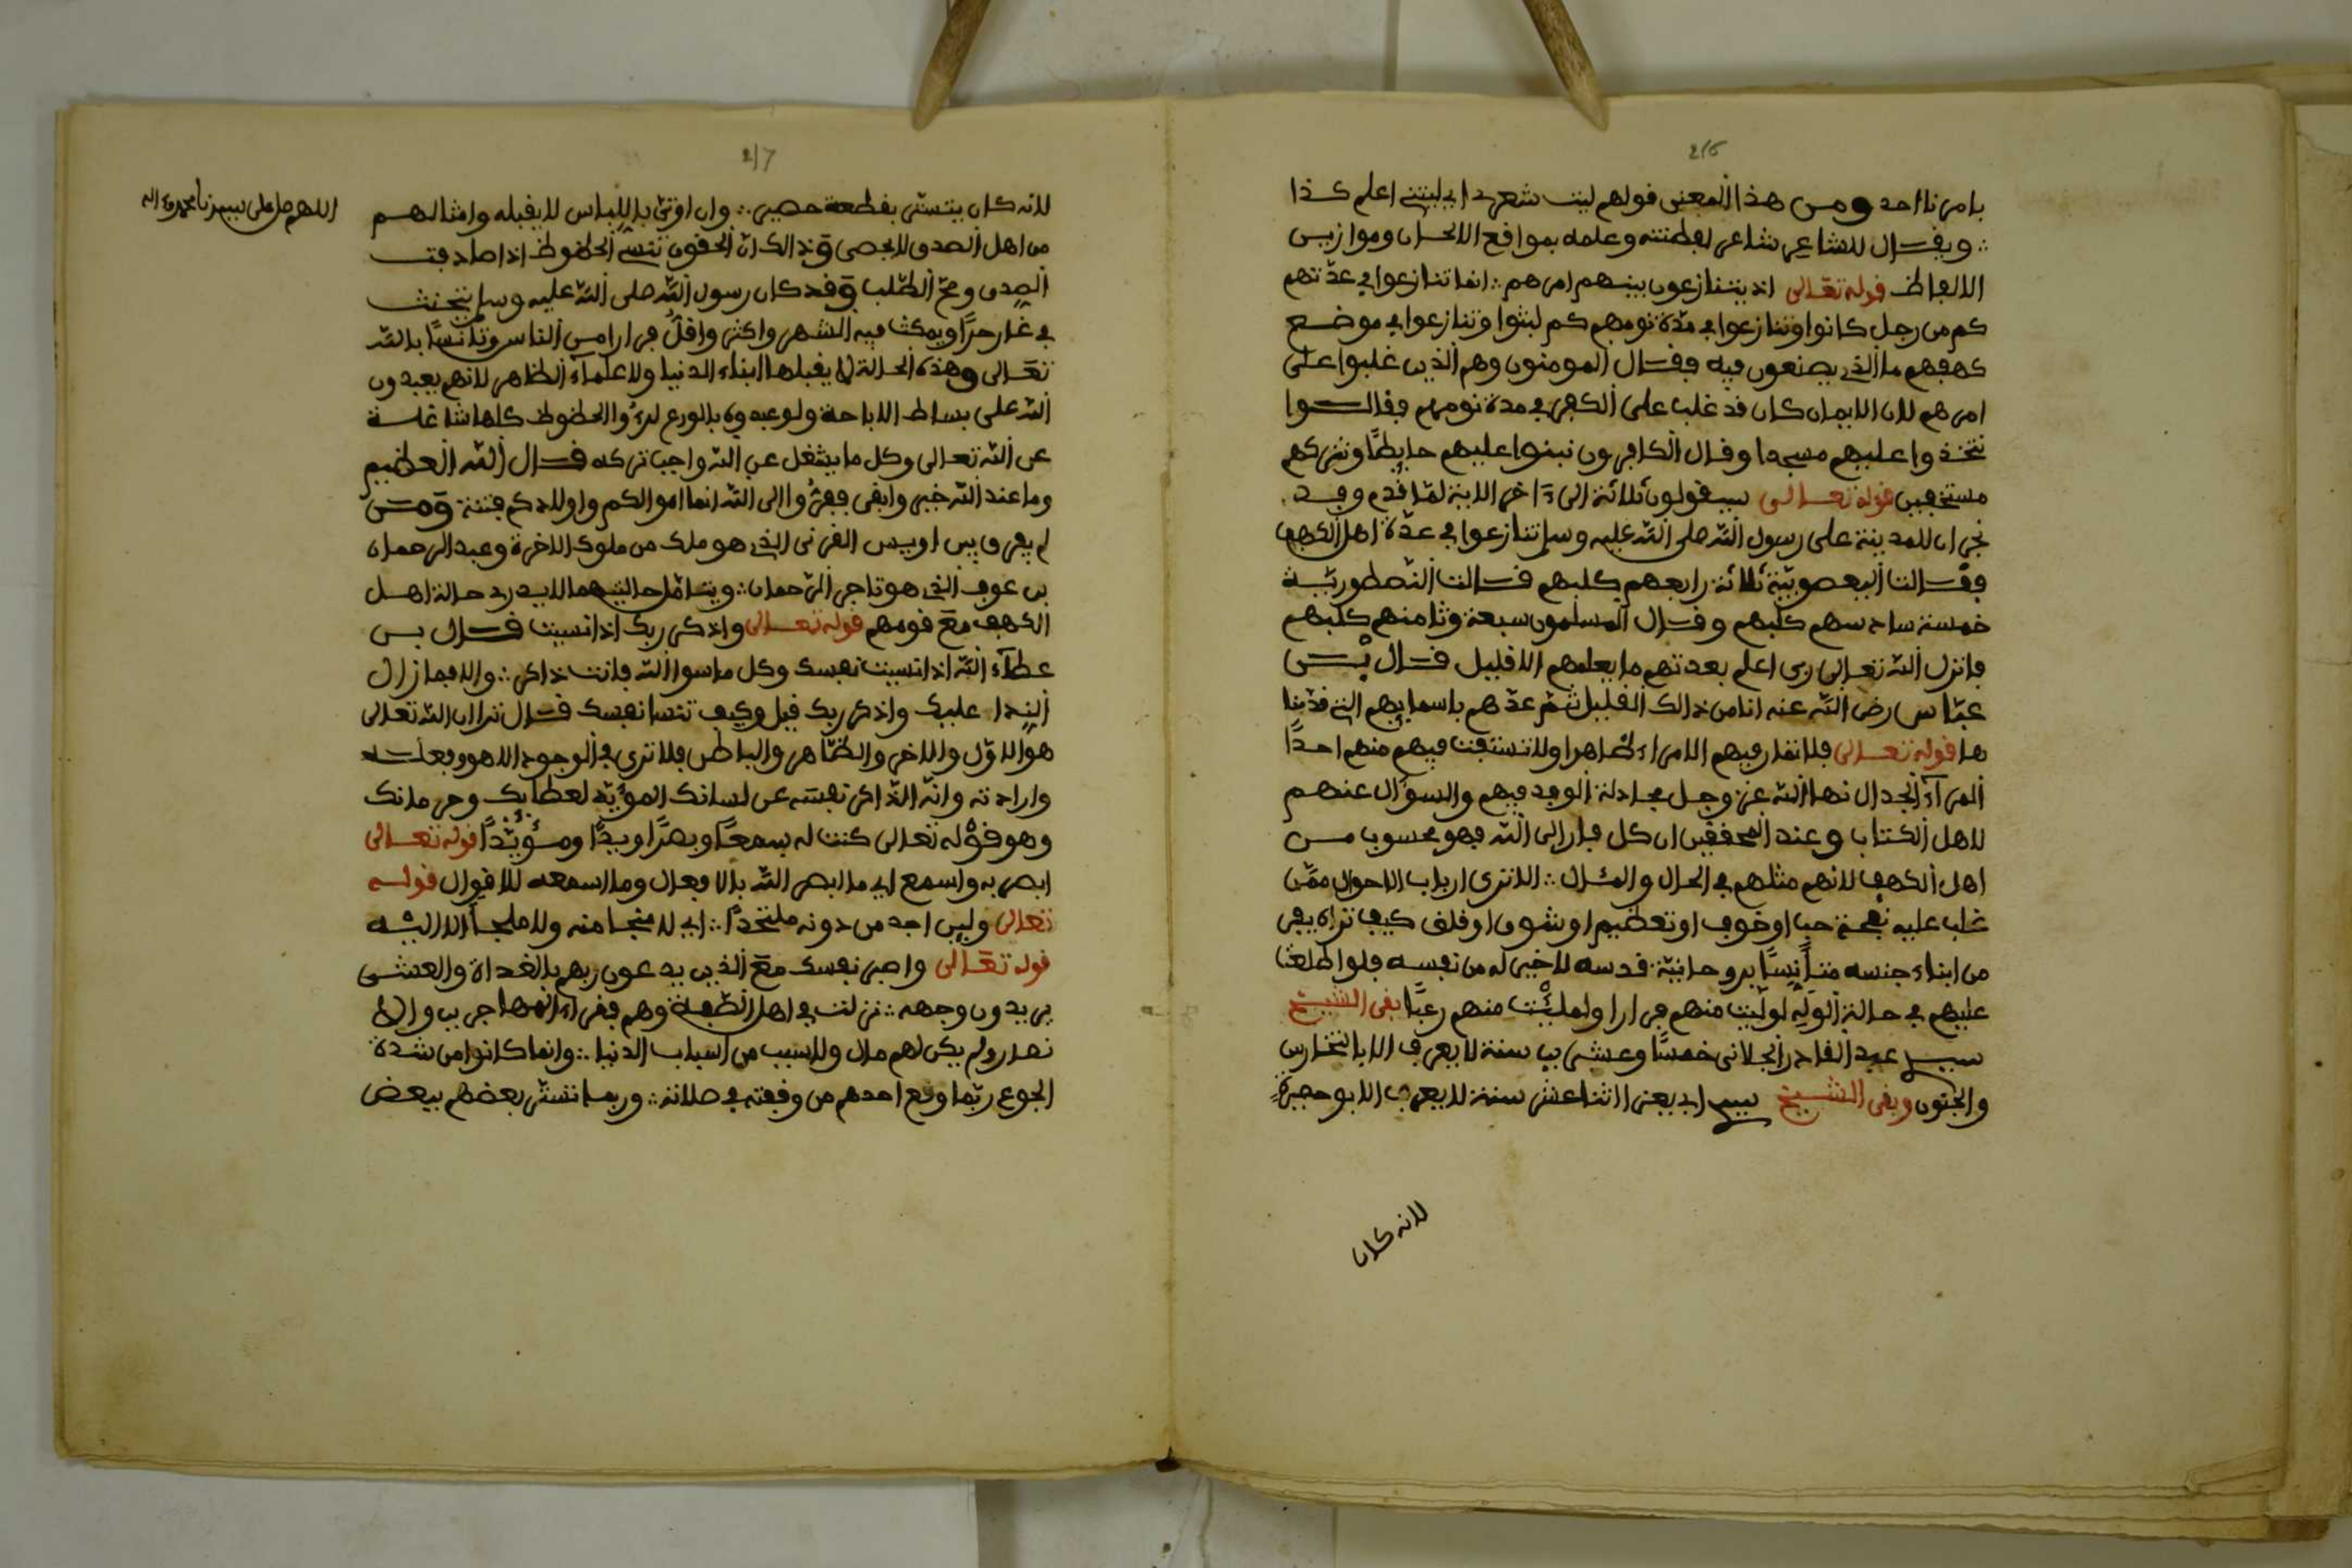 216
بامرنا احد ومن هذا المعنى قولهم ليت شعري اي ليتني اعلم كذا
∴ ويقال للشاعر شاعر لفطنته وعلمه بمواقع الالحان وموازين
الالفاظ قوله تعالى اذ يتنازعون بينهم امرهم ∴ انما تنازعوا في عدّتهم
كم من رجل كانوا وتنازعوا في مدّة نومهم كم لبثوا وتنازعوا في موضع
كهفهم ما الذي يصنعون فيه فقال المومنون وهم الذين غلبوا على
امرهم لان الايمان كان قد غلب على الكفر في مدة نومهم فقالوا
نتخذوا عليهم مسجدا وقال الكافرون نبنوا عليهم حايطًا ونتركهم
مستخفين قوله تعالى سيقولون ثلاثة الى ءاخر الاية لمّا قدم وفد
نجران للمدينة على رسول الله صلى الله عليه وسلم تنازعوا في عدّة اهل الكهف
فقالت اليعصوبيّة ثلاثة رابعهم كلبهم قالت النّصطوريّة
خمسة سادسهم كلبهم وقال المسلمون سبعة وثامنهم كلبهم
فانزل الله تعالى ربى اعلم بعدتهم ما يعلمهم الا قليل قال بن
عبّاس رضى الله عنه انا من ذالك القليل ثم عدّهم باسمايهم التى قدّمنا
ها قوله تعالى فلا تمار فيهم الا مراء ظاهرا ولا تستفت فيهم منهم احدًا
المراء الجدال نها الله عز وجل مجادلة الوفد فيهم والسؤال عنهم
لاهل الكتاب وعند المحققين ان كل فار الى الله فهو محسوب من
اهل الكهف لانهم مثلهم في الحال والمئال ∴ الا ترى ارباب الاحوال ممّن
غلب عليه نفحة حب او خوف او تعظيم او شوق او قلق كيف تراه يفر
من ابناء جنسه متأنسًا بروحانيّة قدسه لا خبر له من نفسه فلو اطلعت
عليهم في حالة الوله لوليت منهم فرارا ولملئت منهم رعبًا بقى الشيخ
سيد عبد القادر الجلانى خمسًا وعشرين سنة لا يعرف الا بالتخارس
والجنون وبقى الشيخ سيد ابي يعزى اثنا عشر سنة لا يعرف الا بو حصيرةٍ
لانه كان
217
لانه كان يتستّر بقطعة حصير ∴ وان اوتيَ بالِلباس لا يقبله وامثالهم
من اهل الصدق لا يحصى وذالك ان الحقوق تنسي الحظوظ اذا صادفت
الصدق وصحّ الطّلب وقد كان رسول الله صلى الله عليه وسلم يتحنث
في غار حرّا ويمكث فيه الشهر واكثر واقلّ فرارا من الناس وتأنسًا بالله
تعالى وهذه الحالة لا يقبلها ابناء الدنيا ولا علماء الظاهر لانهم يعبدون
الله على بساط الاباحة ولو عبدوه بالورع لرءوا الحظوظ كلها شاغلة
عن الله تعالى وكل ما يشغل عن الله واجب تركه قال الله العظيم
وما عند الله خير وابقى ففرّوا الى الله انما اموالكم واولادكم فتنة ومن
لم يفرق بين اويس القرنى الذي هو ملك من ملوك الاخرة وعبد الرحمان
بن عوف الذي هو تاجر الرّحمان ∴ ويتامّل حالتيهما لا يدري حالة اهل
الكهف مع قومهم قوله تعالى واذكر ربك اذا نسيت قال بن
عطاء الله اذا نسيت نفسك وكل ما سوا الله فانت ذاكر ∴ والا فما زال
الندا عليك واذكر ربك قيل وكيف تنسا نفسك قال ترا ان الله تعالى
هو الاوّل والاخر والظّاهر والباطن فلا ترى في الوجود الا هو وفعله
وارادته وانّه الذّاكر نفسَه عن لسانك المؤيّد لعطايك وحرمانك
وهو قوله تعالى كنت له سمعًا وبصرًا ويدًا ومؤيّدًا قوله تعالى
ابصر به واسمع اي ما ابصر الله بالافعال وما اسمعه للاقوال قوله
تعالى ولن اجد من دونه ملتحدًا ∴ اي لا منجا منه ولا ملجأ الا اليه
قوله تعالى واصبر نفسك مع الذين يدعون ربهم بالغداة والعشى
يريدون وجهه ∴ نزلت في اهل الصّفة وهم فقراء المهاجرين والا
نصار ولم يكن لهم مال ولا سبب من اسباب الدنيا ∴ وانما كانوا من شدّة
الجوع ربّما وقع احدهم من وقفته في صلاته ∴ وربما تستّر بعضهم ببعض
اللهم صل على سيدنا محمد وءاله